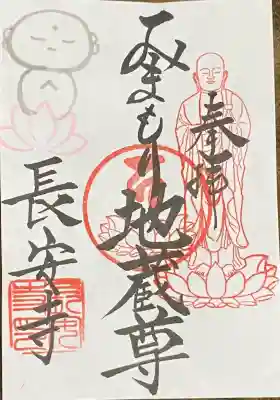 奉拝
みまもり地蔵尊
長安寺